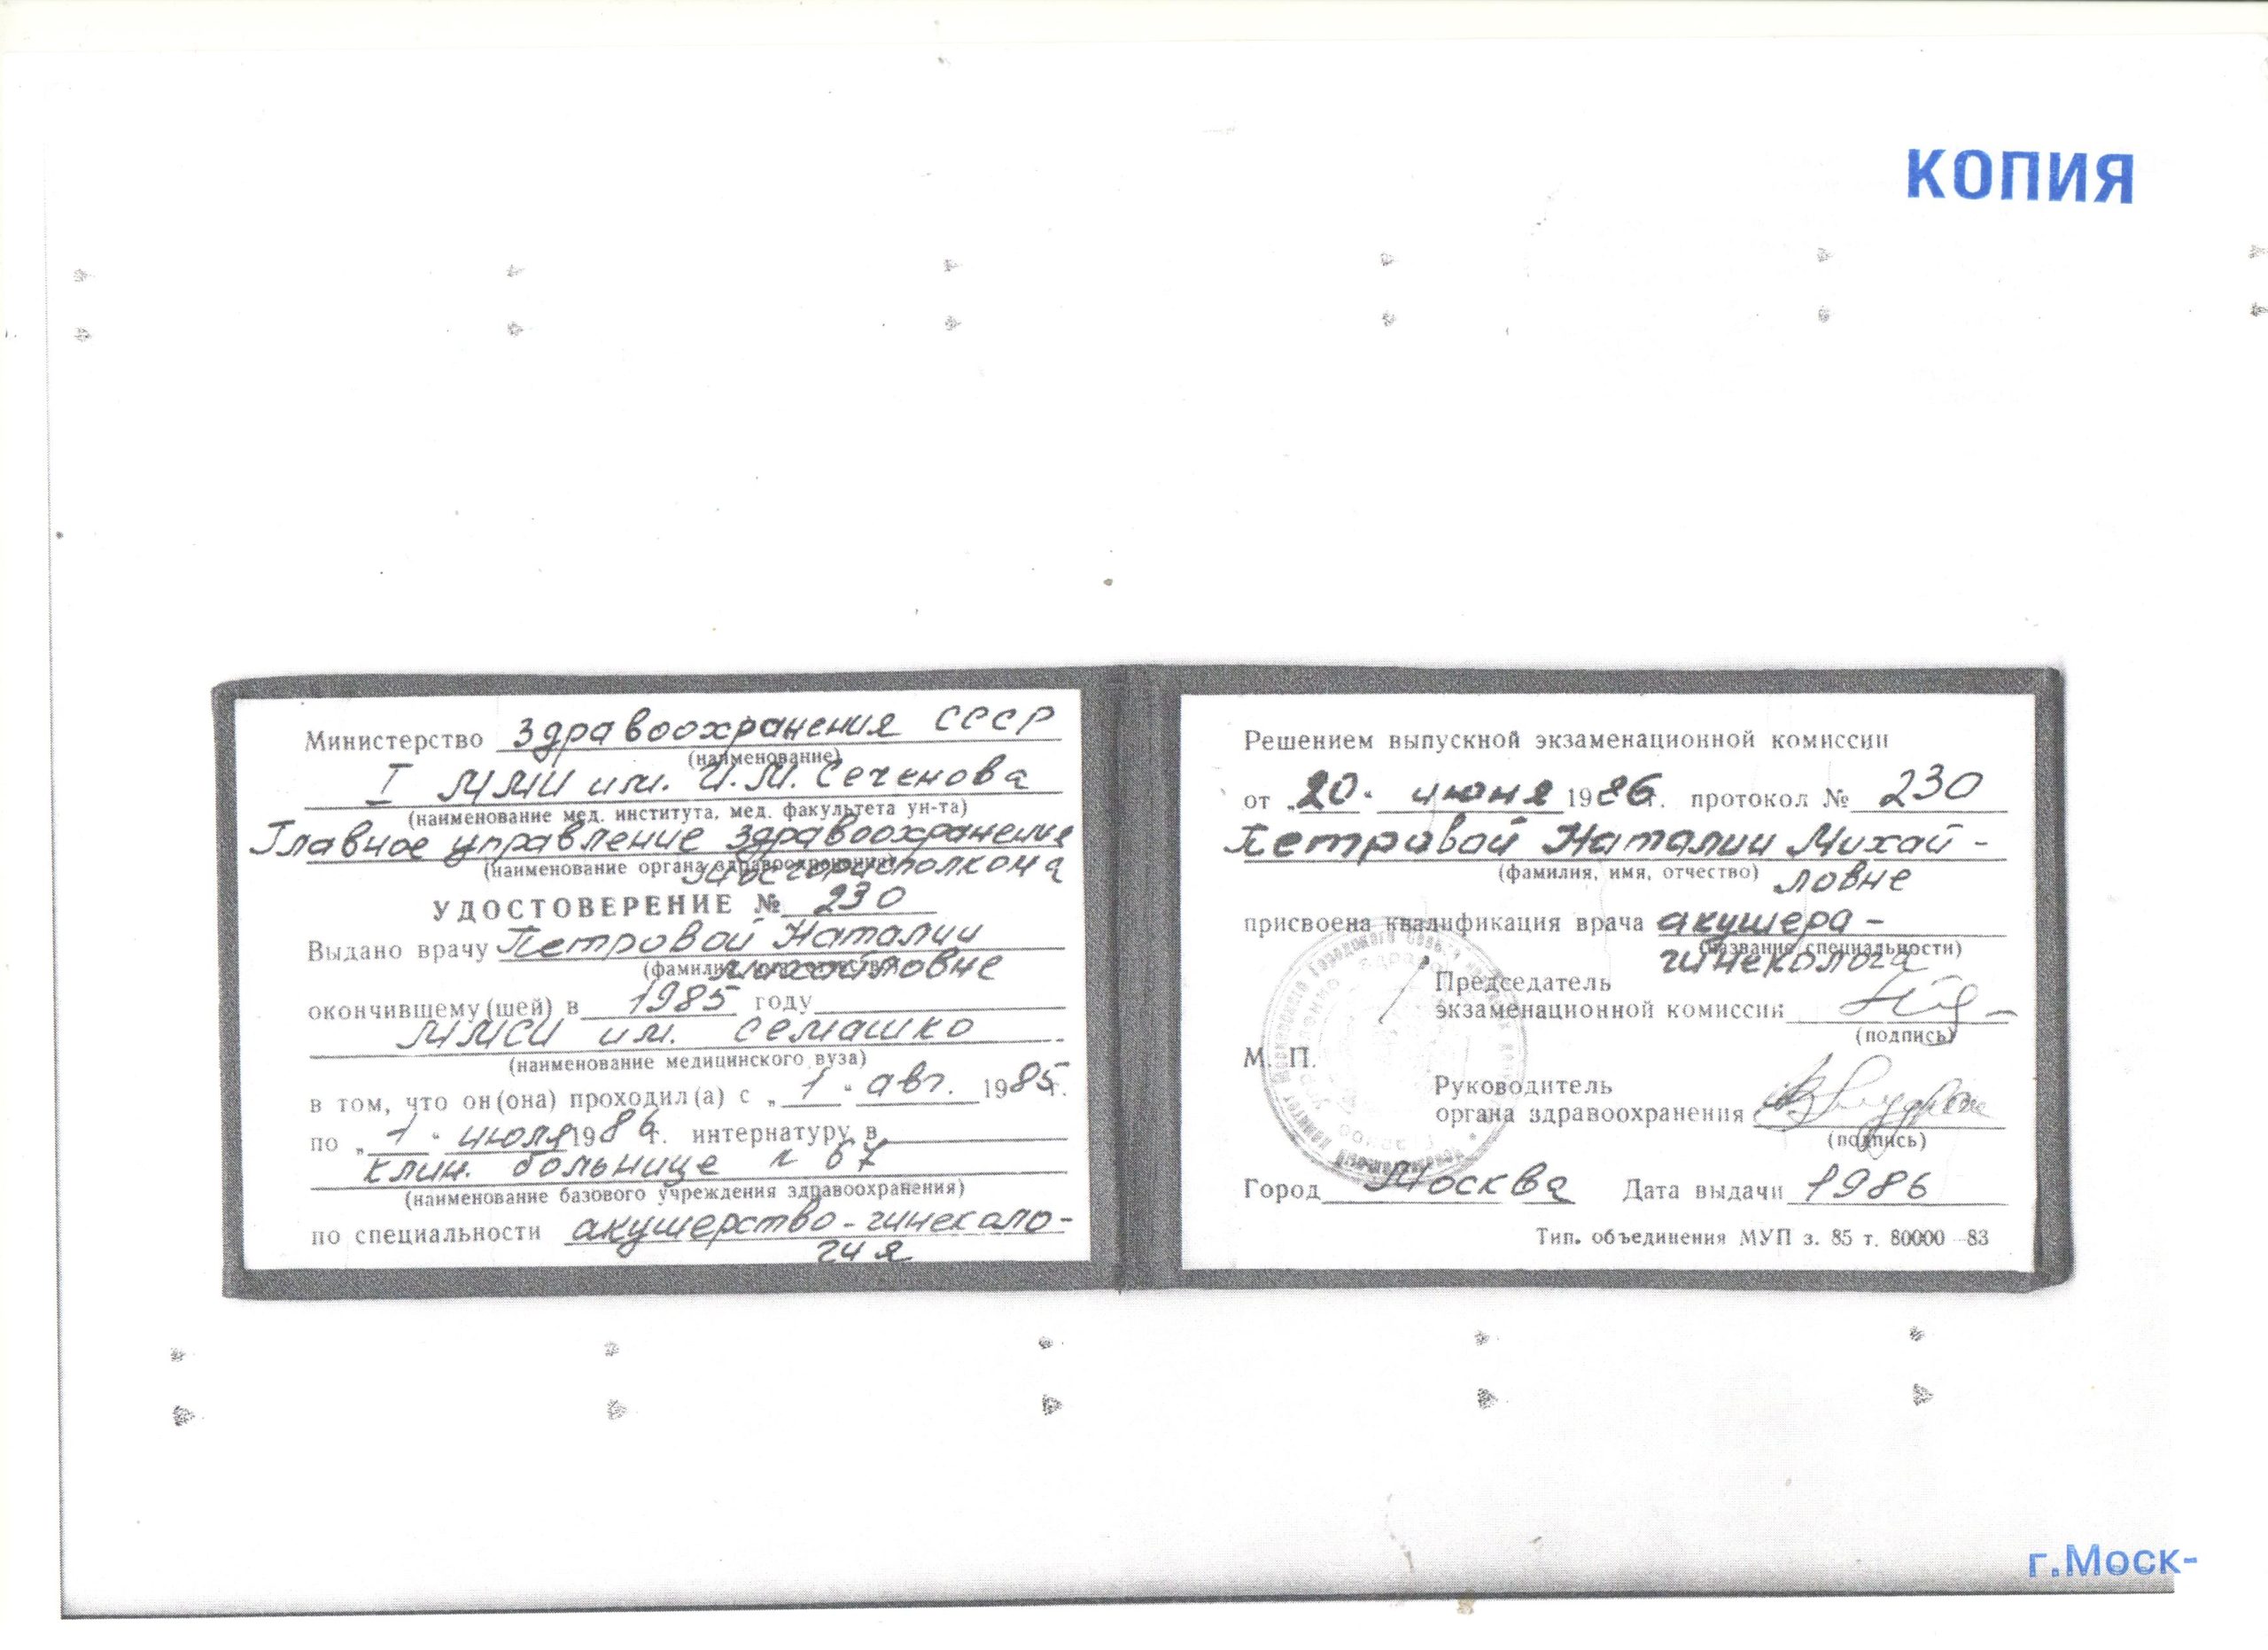 КОПИЯ
Министерство здравоохранения СССР
(наименование)
I ММИ им. И.М. Сеченова
(наименование мед. института, мед. факультета ун-та)
Главное управление здравоохранения
(наименование органа здравоохранения)
Мосгорисполкома
УДОСТОВЕРЕНИЕ № 230
Выдано врачу Петровой Наталии
(фамилия
Михайловне
окончившему (шей) в 1985 году
ММСИ им. Семашко
(наименование медицинского вуза)
в том, что он (она) проходил (а) с „1" авг. 1985г.
по „1" июля 1986г. интернатуру в
клин. больнице N 67
(наименование базового учреждения здравоохранения)
по специальности акушерство-гинеколо-
гия
Решением выпускной экзаменационной комиссии
от „20" июня 1986г. протокол № 230
Петровой Наталии Михай-
(фамилия, имя, отчество) ловне
присвоена квалификация врача акушера-
(название специальности)
гинеколога
Председатель
экзаменационной комиссии
(подпись)
М. П.
Руководитель
органа здравоохранения
(подпись)
Город Москва Дата выдачи 1986
Тип. объединения МУП з. 85 т. 80000—83
г.Моск-